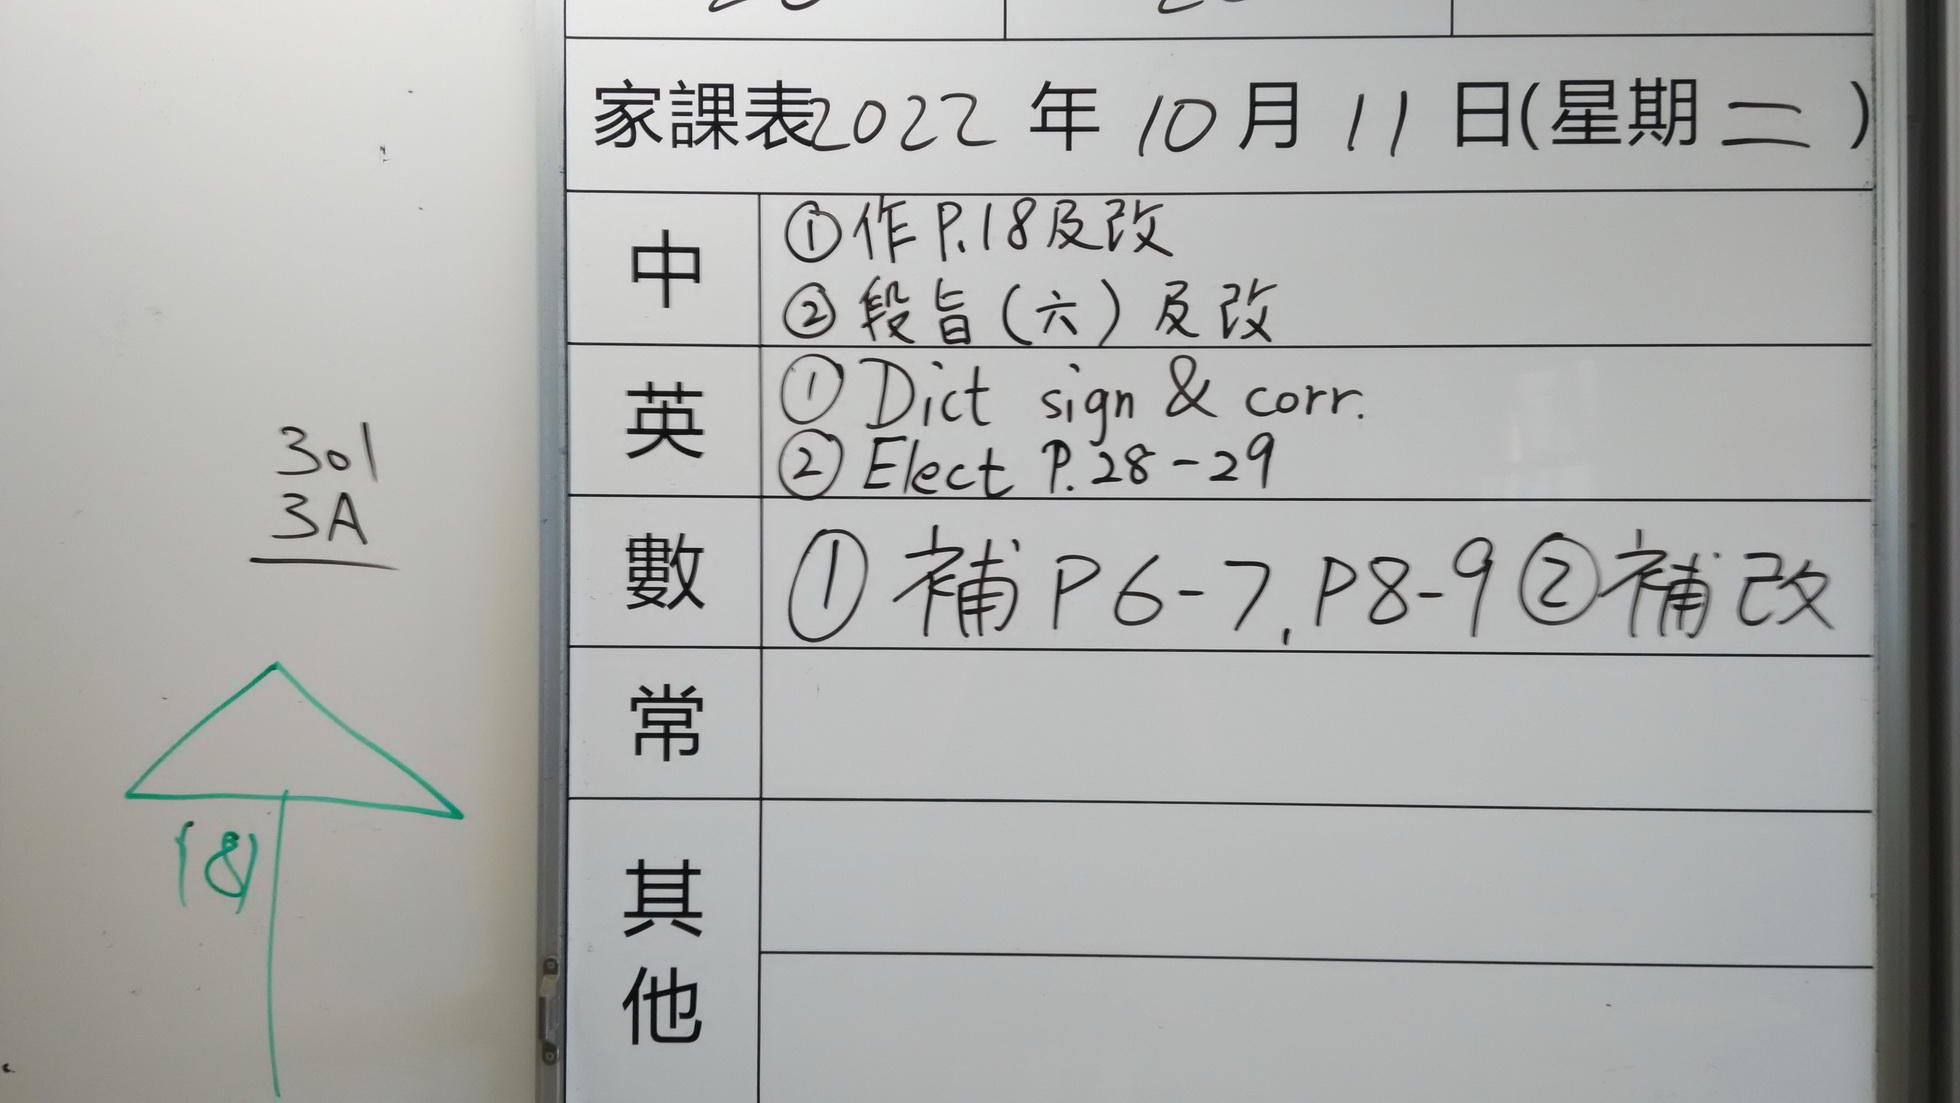 家課表2022年10月11日(星期二)
中
①作P.18及改
②段旨(六)及改
英
①Dict sign & corr.
②Elect P.28-29
數
①補P6-7,P8-9②補改
常
其他
301
3A
(8)